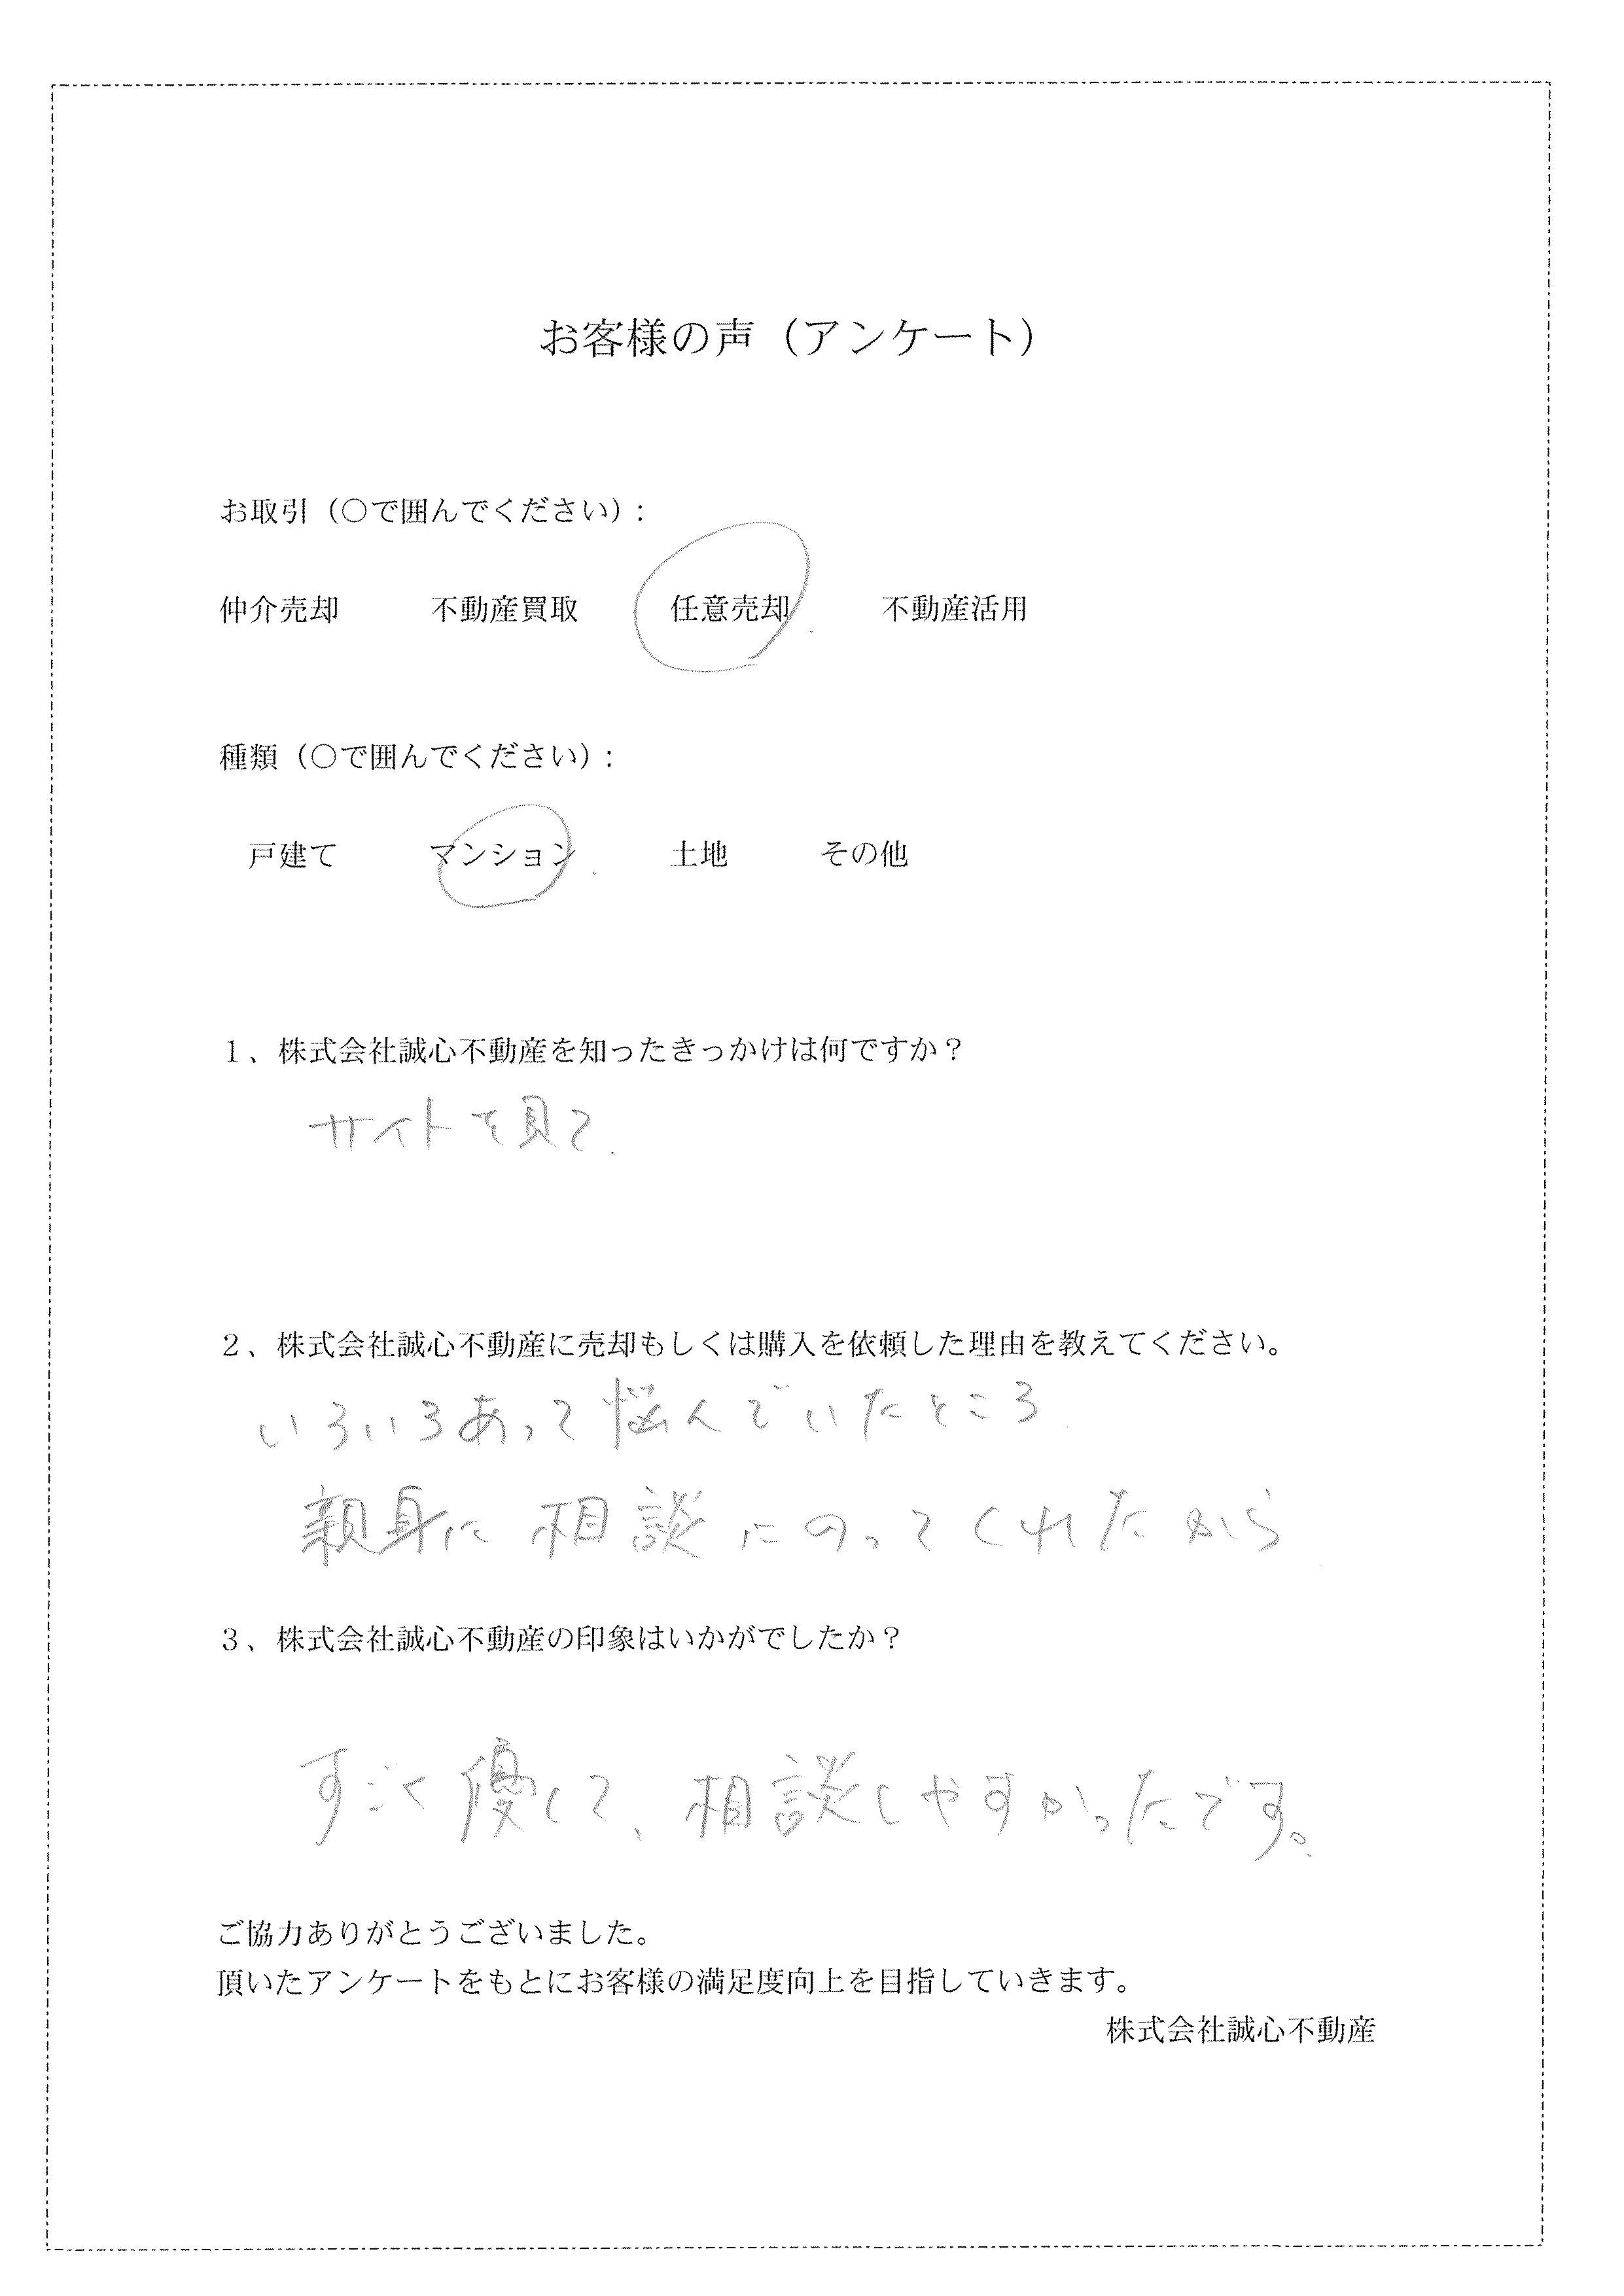 お客様の声（アンケート）
お取引（○で囲んでください）：
仲介売却 不動産買取 任意売却 不動産活用
種類（○で囲んでください）：
戸建て マンション 土地 その他
１、株式会社誠心不動産を知ったきっかけは何ですか？
サイトを見て.
２、株式会社誠心不動産に売却もしくは購入を依頼した理由を教えてください。
いろいろあって悩んでいたところ
親身に相談にのってくれたから
３、株式会社誠心不動産の印象はいかがでしたか？
すごく優して、相談しやすかったです。
ご協力ありがとうございました。
頂いたアンケートをもとにお客様の満足度向上を目指していきます。
株式会社誠心不動産